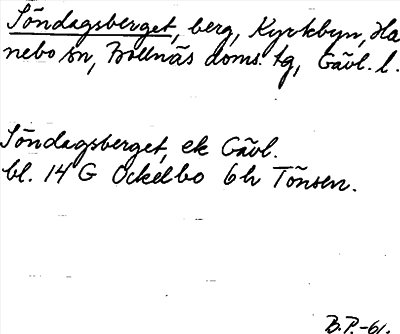 Söndagsberget, berg, Kyrkbyn, Ha
nebo sn, Bollnäs doms. tg, Gävl. l.
Söndagsberget, ek Gävl.
bl. 14 G Ockelbo 6h Tönsen.
B.P.-61.